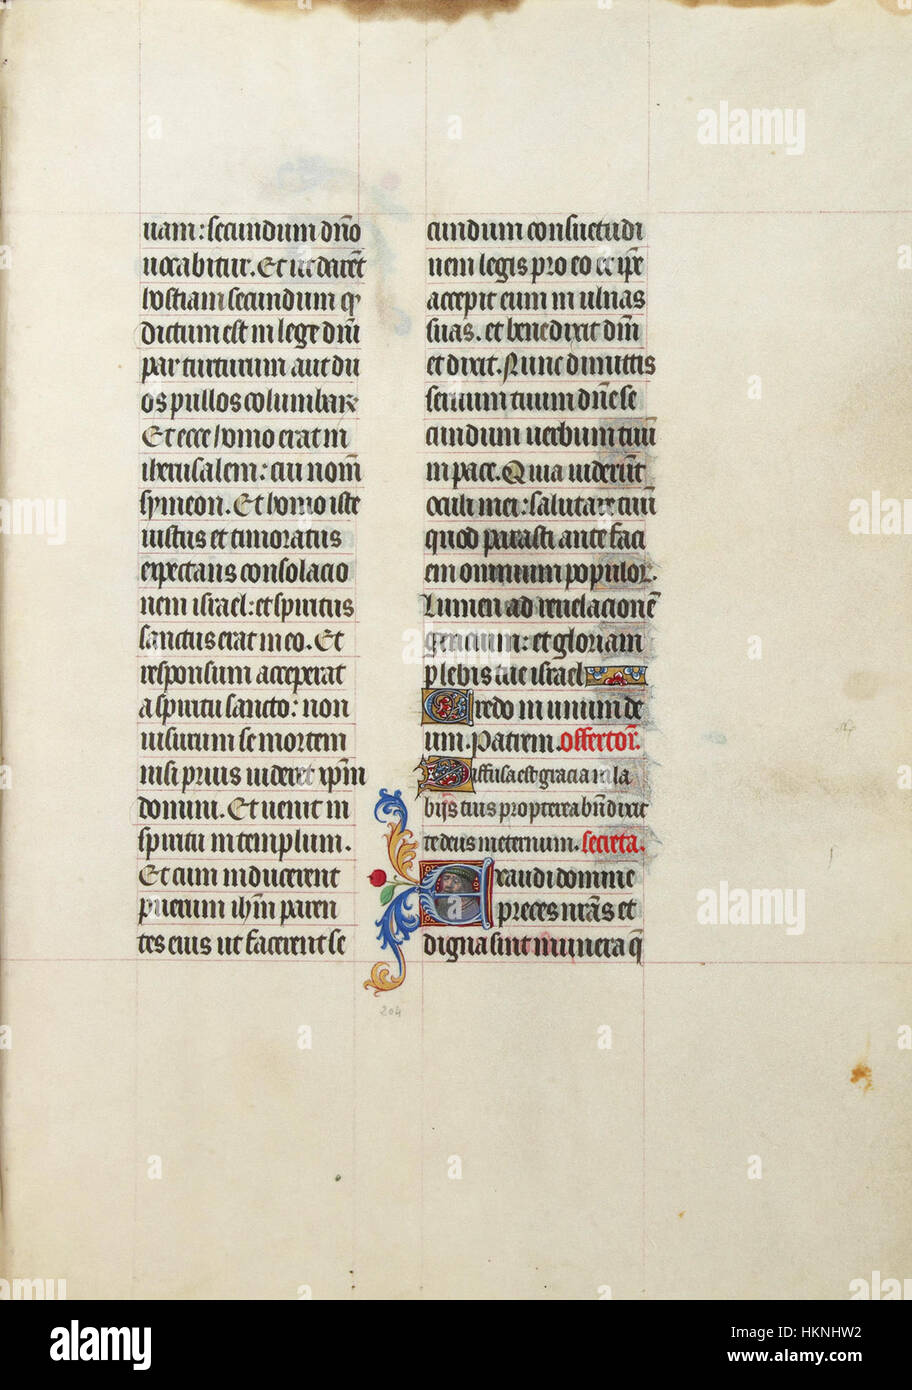 uam: secundum dño
uocabitur. Et ut darent
hostiam secundum q
dictum est in lege dñi
par turturum aut du
os pullos columbar
Et ecce homo erat in
iherusalem: cui nom̃
symeon. Et homo iste
iustus et timoratus
expectans consolacio
nem israel: et spiritus
sanctus erat in eo. Et
responsum acceperat
a spiritu sancto: non
uisurum se mortem
nisi prius uideret xp̃m
domini. Et uenit in
spiritu in templum.
Et cum inducerent
puerum ihm̃ paren
tes eius ut facerent se
cundum consuetudi
nem legis pro eo et ip̃e
accepit eum in ulnas
suas. et benedixit dm̃
et dixit. Nunc dimittis
seruum tuum dñe se
cundum uerbum tuũ
in pace. Quia uiderũt
oculi mei: salutare tuũ
quod parasti ante faci
em omnium populor.
Lumen ad reuelacionẽ
gencium: et gloriam
plebis tue israel
Credo in unum de
um. Patrem. offertor̃.
Diffusa est gracia in la
bijs tuis propterea bñdixit
te deus in eternum. secreta.
Exaudi domine
preces nrãs et
digna sint munera q̃
204
alamy
alamy
Image ID: HKNHW2
www.alamy.com